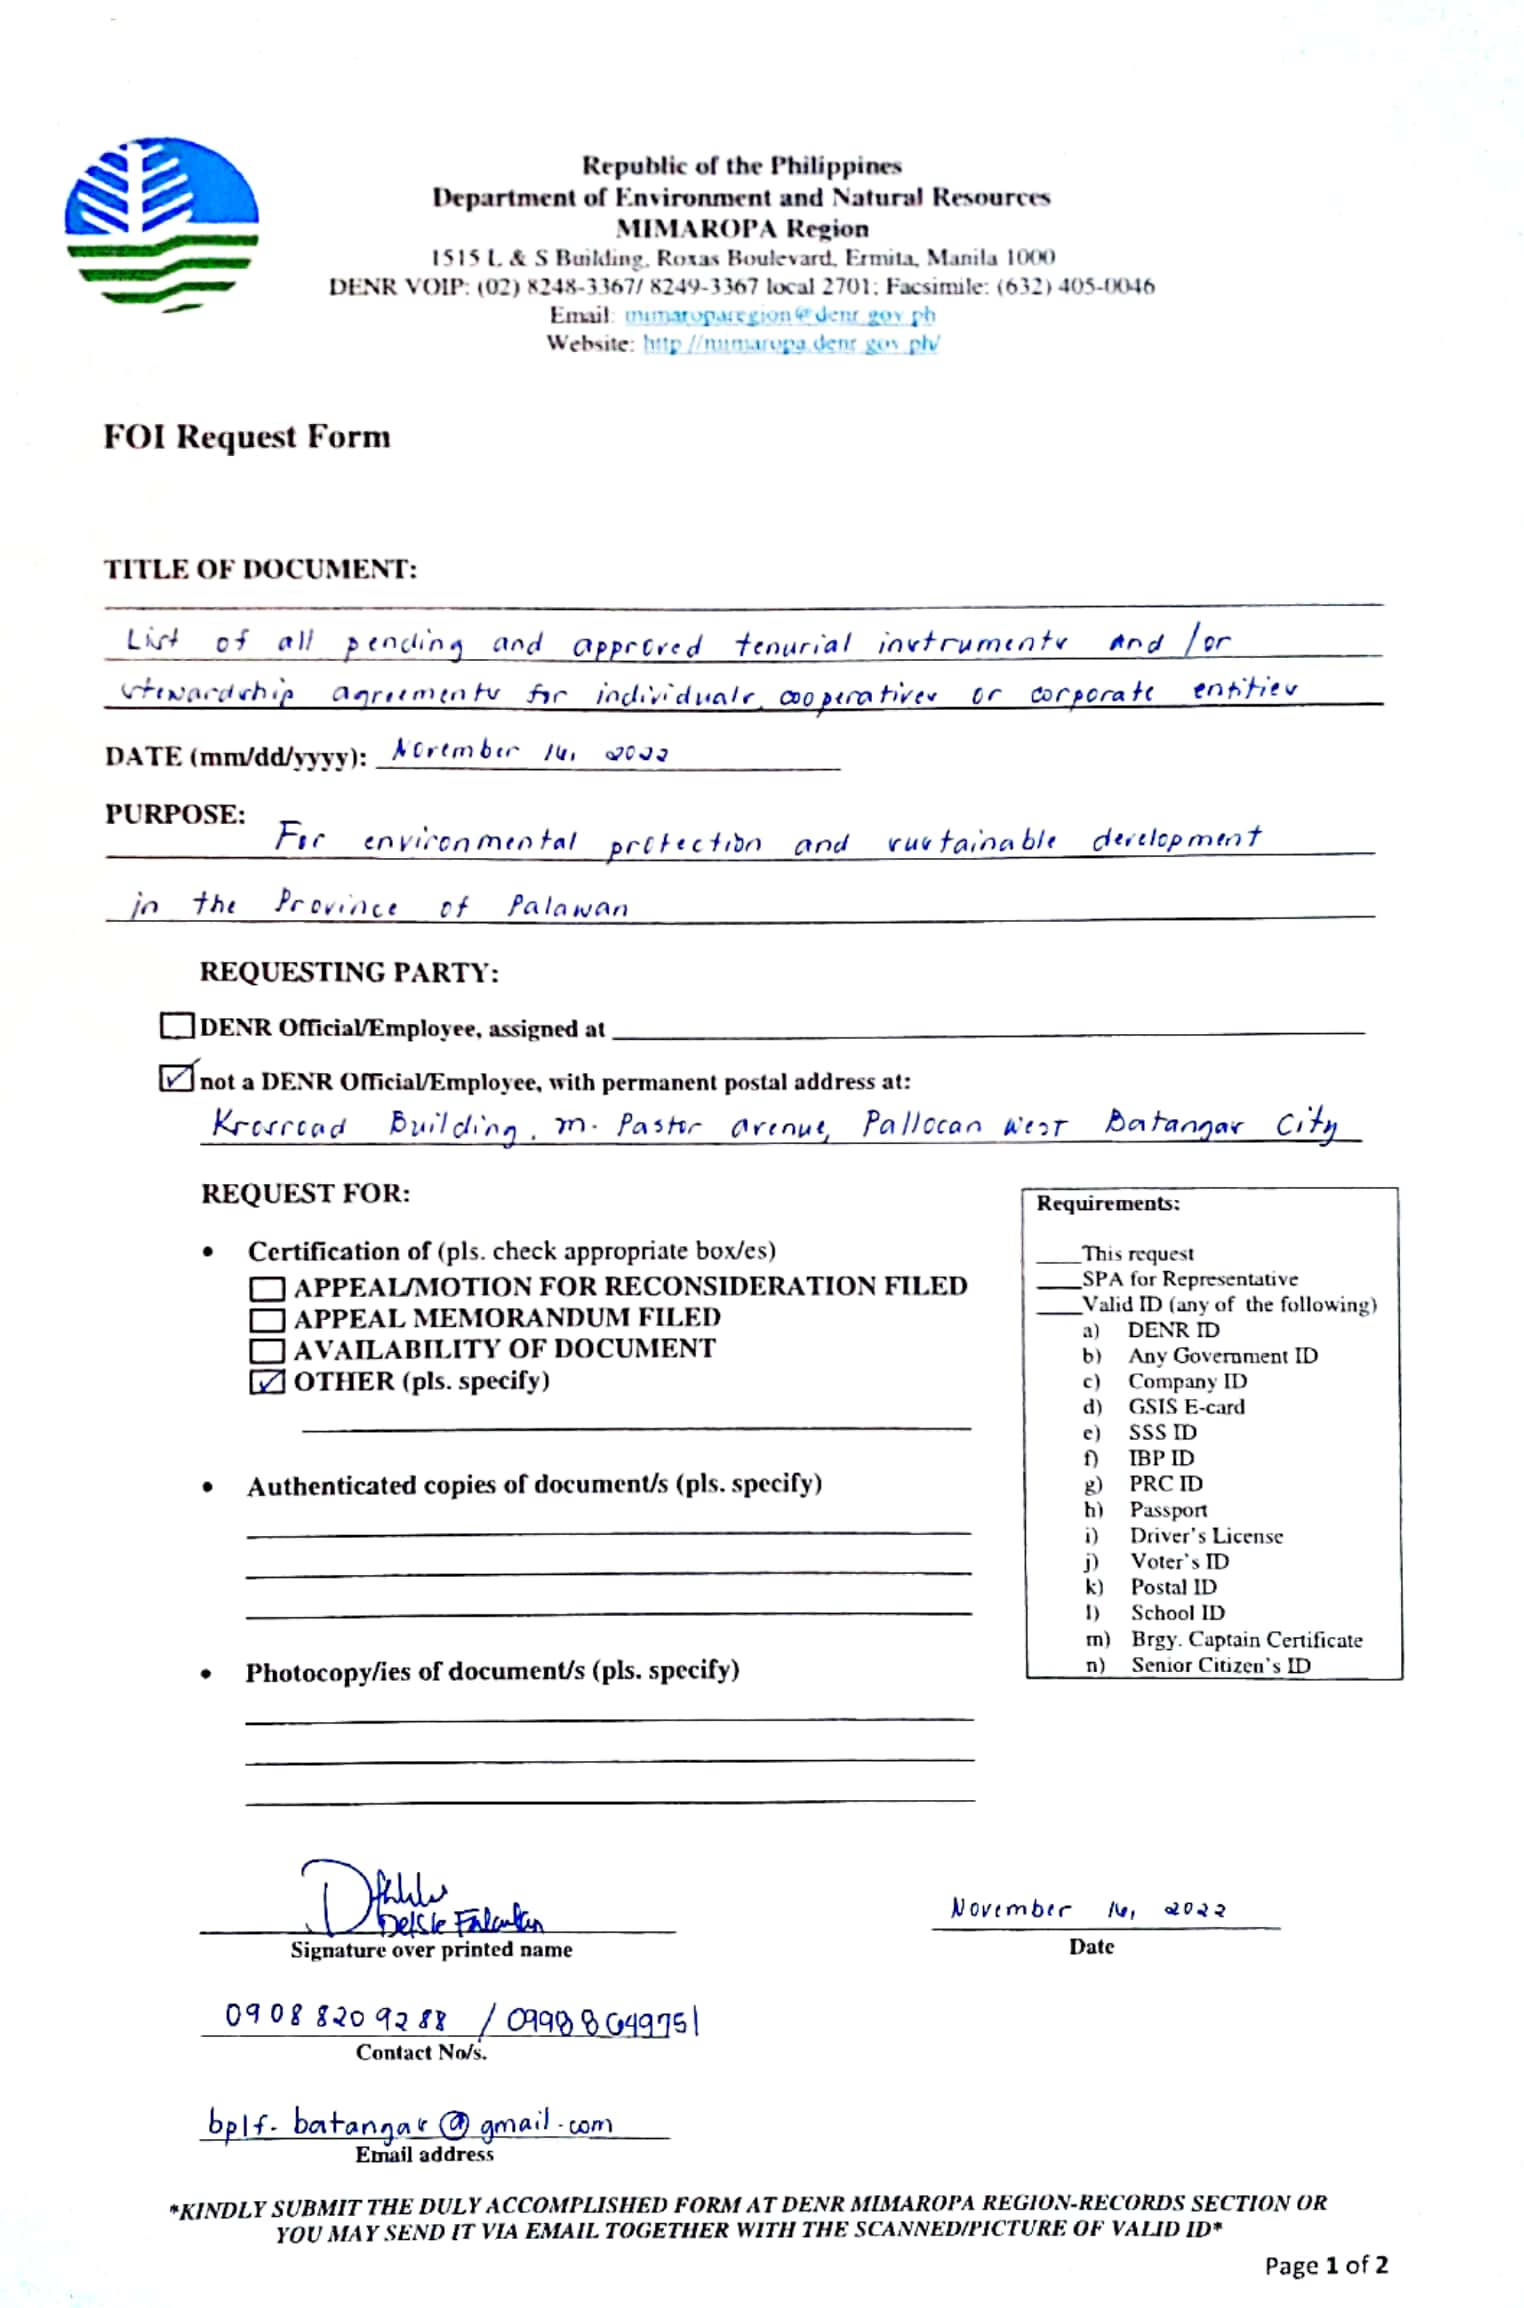 Republic of the Philippines
Department of Environment and Natural Resources
MIMAROPA Region
1515 L & S Building, Roxas Boulevard, Ermita, Manila 1000
DENR VOIP: (02) 8248-3367/ 8249-3367 local 2701; Facsimile: (632) 405-0046
Email: mimaroparegion@denr.gov.ph
Website: http://mimaropa.denr.gov.ph/
FOI Request Form
TITLE OF DOCUMENT:
List of all pending and approved tenurial instruments and /or
stewardship agreements for individuals, cooperatives or corporate entities
DATE (mm/dd/yyyy): November 16, 2022
PURPOSE:
For environmental protection and sustainable development
in the Province of Palawan
REQUESTING PARTY:
DENR Official/Employee, assigned at
not a DENR Official/Employee, with permanent postal address at:
Krosroad Building, M. Pastor avenue, Pallocan West Batangas City
REQUEST FOR:
• Certification of (pls. check appropriate box/es)
APPEAL/MOTION FOR RECONSIDERATION FILED
APPEAL MEMORANDUM FILED
AVAILABILITY OF DOCUMENT
OTHER (pls. specify)
• Authenticated copies of document/s (pls. specify)
• Photocopy/ies of document/s (pls. specify)
Requirements:
____This request
____SPA for Representative
____Valid ID (any of the following)
a) DENR ID
b) Any Government ID
c) Company ID
d) GSIS E-card
e) SSS ID
f) IBP ID
g) PRC ID
h) Passport
i) Driver's License
j) Voter's ID
k) Postal ID
l) School ID
m) Brgy. Captain Certificate
n) Senior Citizen's ID
Signature over printed name
November 16, 2022
Date
09088209288 / 09988649751
Contact No/s.
bplf.batangas@gmail.com
Email address
*KINDLY SUBMIT THE DULY ACCOMPLISHED FORM AT DENR MIMAROPA REGION-RECORDS SECTION OR
YOU MAY SEND IT VIA EMAIL TOGETHER WITH THE SCANNED/PICTURE OF VALID ID*
Page 1 of 2